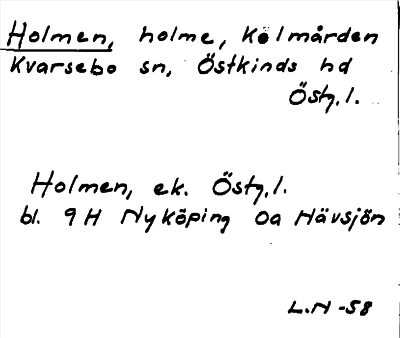 Holmen, holme, Kolmården
Kvarsebo sn, Östkinds hd
Östg.l.
Holmen, ek. Östg.l.
bl. 9H Nyköping 0a Hävsjön
L.N -58